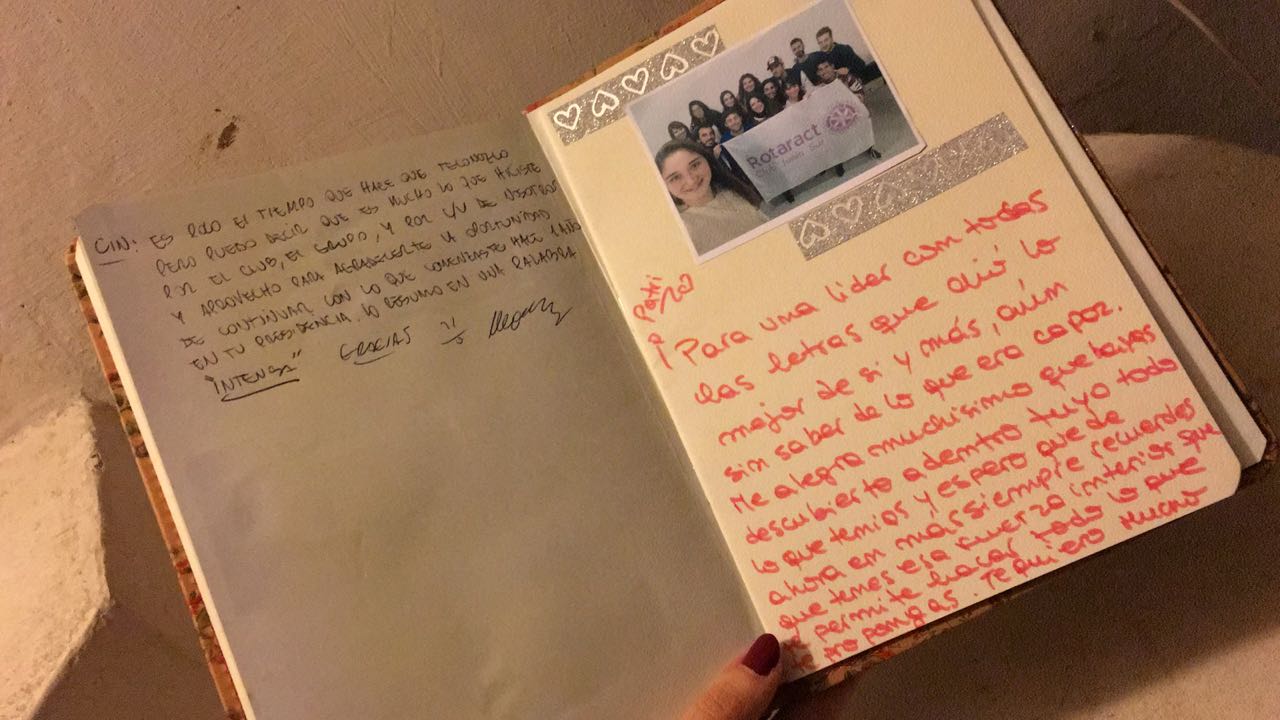 CIN: ES POCO EL TIEMPO QUE HACE QUE TE CONOZCO
PERO PUEDO DECIR QUE ES MUCHO LO QUE HICISTE
POR EL CLUB, EL GRUPO, Y POR C/U DE NOSOTROS
Y APROVECHO PARA AGRADECERTE LA OPORTUNIDAD
DE CONTINUAR CON LO QUE COMENZASTE HACE 1 AÑO
EN TU PRESIDENCIA. LO RESUMO EN UNA PALABRA
"INTENSA" GRACIAS
Rotaract
Club Junín Sur
Patri
Para una lider com todas
las letras que dió lo
mejor de si y más, aúm
sim saber de lo que era capaz.
Me alegra muchisimo que hayas
descubierto ademtro tuyo todo
lo que temias y espero que de
ahora em mas siempre recuerdes
que temes esa fuerza imterior que
te permite hacer todo lo que
te propomgas. Te quiero MUCHO